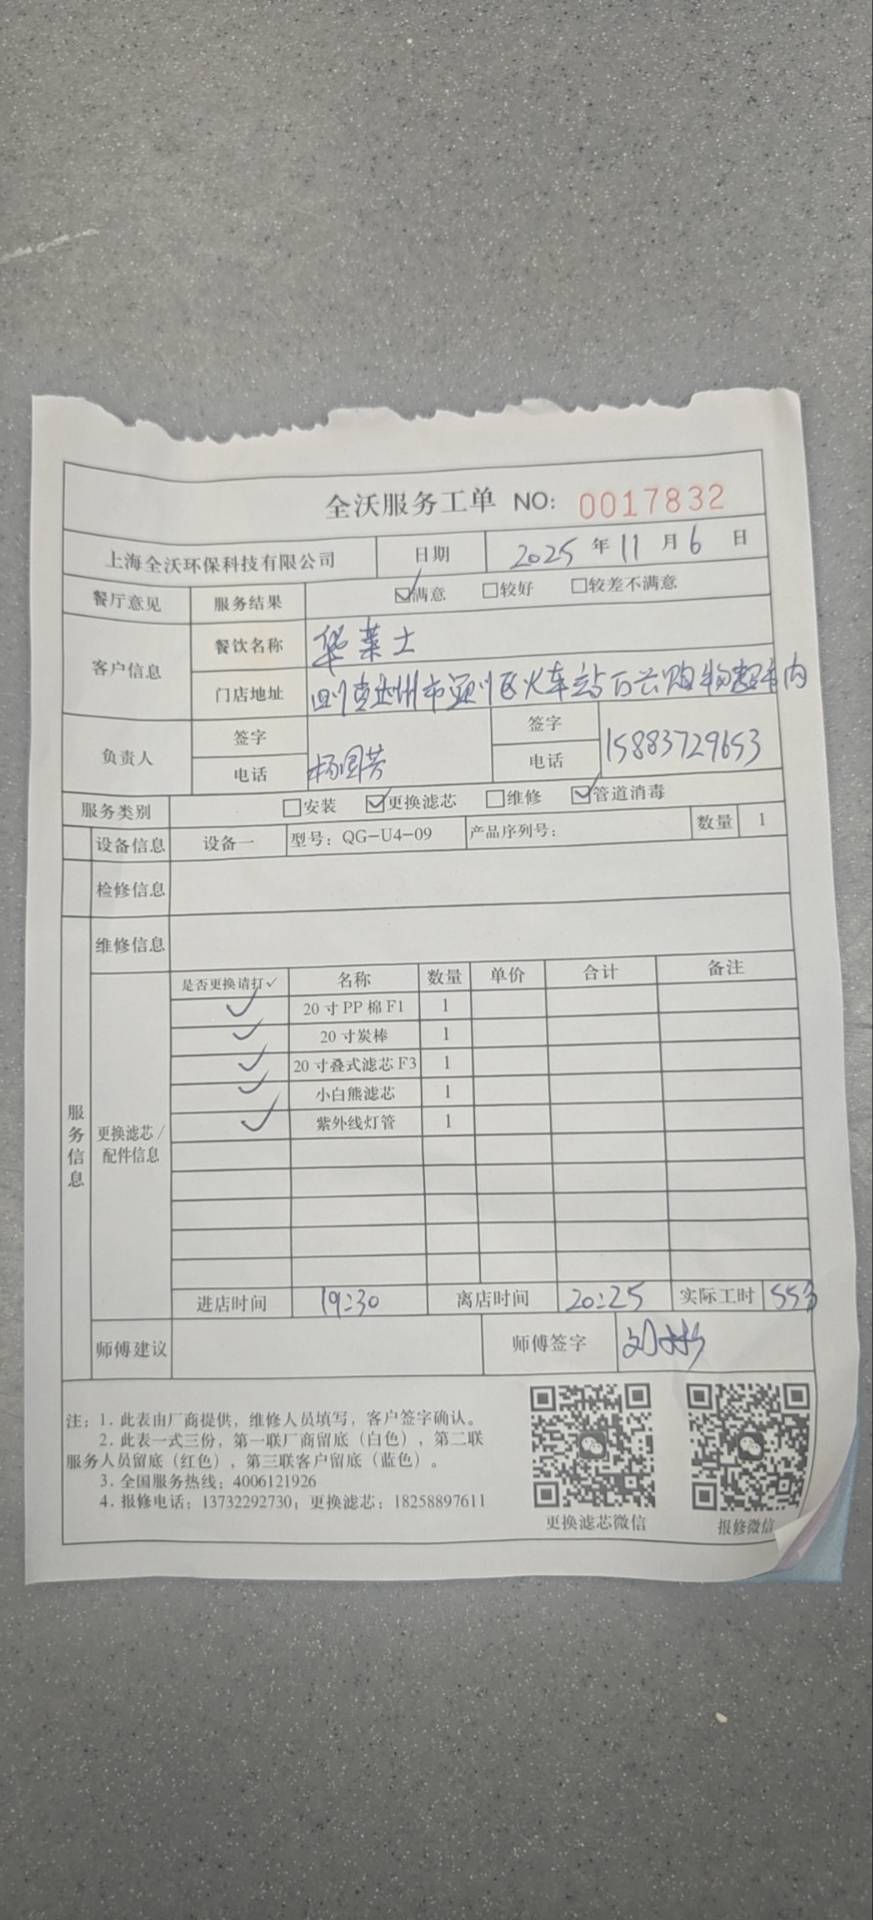 全沃服务工单 NO: 0017832
上海全沃环保科技有限公司 日期 2025 年 11 月 6 日
餐厅意见 服务结果 ☑满意 □较好 □较差不满意
客户信息 餐饮名称 华莱士
门店地址 四川省达州市通川区火车站万兴购物超市内
负责人 签字 签字
电话 杨国芳 电话 15883729653
服务类别 □安装 ☑更换滤芯 □维修 ☑管道消毒
设备信息 设备一 型号: QG-U4-09 产品序列号: 数量 1
检修信息
维修信息
服务信息 更换滤芯/配件信息
是否更换请打✓ 名称 数量 单价 合计 备注
✓ 20寸PP棉F1 1
✓ 20寸炭棒 1
✓ 20寸叠式滤芯F3 1
✓ 小白熊滤芯 1
✓ 紫外线灯管 1
进店时间 19:30 离店时间 20:25 实际工时
师傅建议 师傅签字
注: 1. 此表由厂商提供, 维修人员填写, 客户签字确认。
2. 此表一式三份, 第一联厂商留底 (白色), 第二联
服务人员留底 (红色), 第三联客户留底 (蓝色)。
3. 全国服务热线: 4006121926
4. 报修电话: 13732292730; 更换滤芯: 18258897611
更换滤芯微信 报修微信